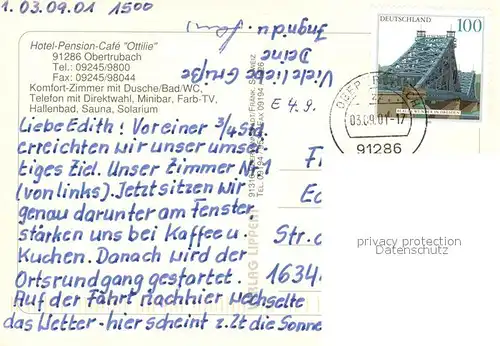 1. 03.09.01 1500
Hotel-Pension-Café "Ottilie"
91286 Obertrubach
Tel.: 09245/9800
Fax: 09245/98044
Komfort-Zimmer mit Dusche/Bad/WC,
Telefon mit Direktwahl, Minibar, Farb-TV,
Hallenbad, Sauna, Solarium
Liebe Edith! Vor einer 3/4 Std.
erreichten wir unser
tiges Ziel. Unser Zimmer Nr 1
(von links). Jetzt sitzen wir
genau darunter am Fenster
stärken uns bei Kaffee u.
Kuchen. Danach wird der
Ortsrundgang gestartet.
Auf der Fahrt nachhier wechselte
das Wetter - hier scheint z.Zt die Sonne
Viele liebe Grüße
Deine
E 4.9.
VERLAG LIPPERT
DEUTSCHLAND
100
03.09.01-17
91286
Str.
1634
privacy protection
Datenschutz